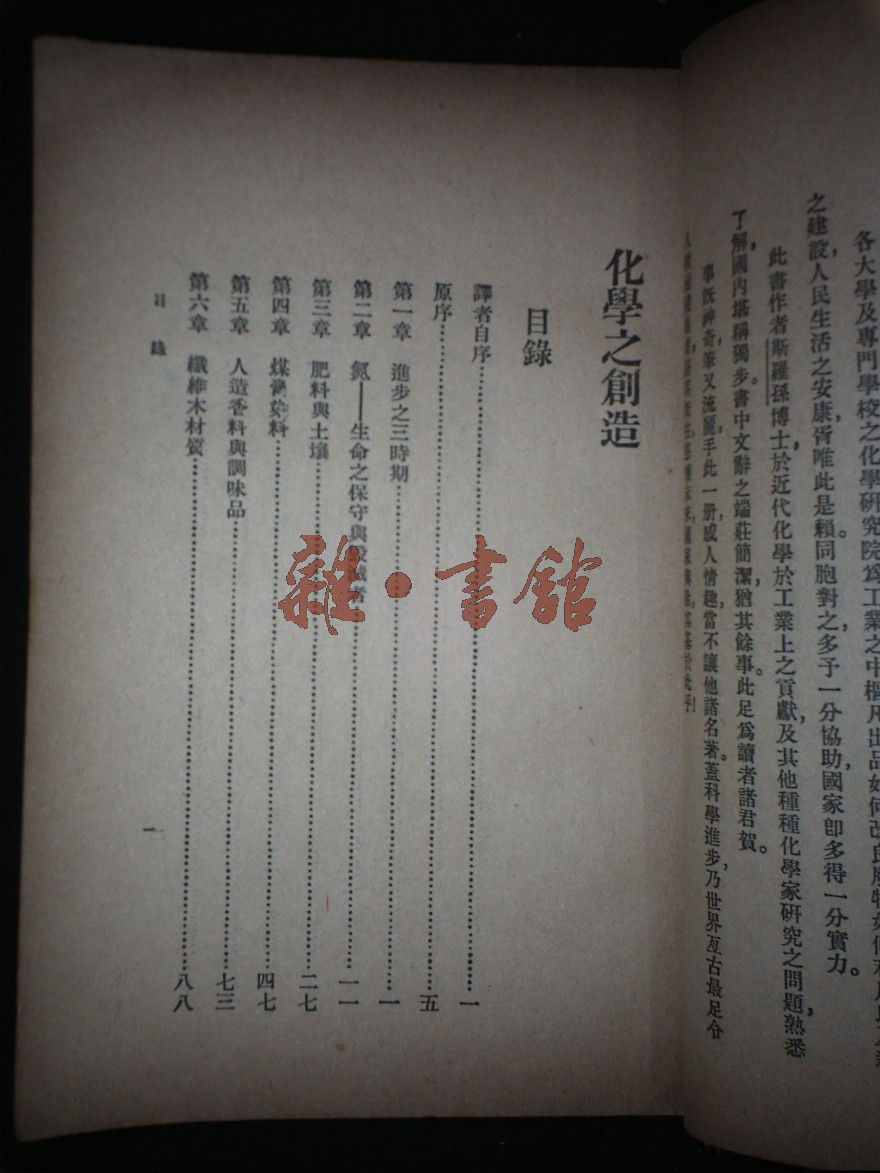 各大學及專門學校之化學研究院爲工業之中樞凡出品如何改良廢物如何利用
之建設人民生活之安康胥唯此是賴同胞對之多予一分協助國家卽多得一分實力。
此書作者斯羅孫博士於近代化學於工業上之貢獻及其他種種化學家硏究之問題熟悉
了解國內堪稱獨步書中文辭之端莊簡潔猶其餘事此足爲讀者諸君賀。
事旣神奇筆又流麗手此一册感人情趣當不讓他諸名著蓋科學進步乃世界亙古最足令
化學之創造
目錄
譯者自序 一
原序 五
第一章 進步之三時期 一
第二章 氮——生命之保守與毀滅者 一一
第三章 肥料與土壤 二七
第四章 煤膏染料 四七
第五章 人造香料與調味品 七三
第六章 纖維木材質 八八
目錄
一
雜·書館